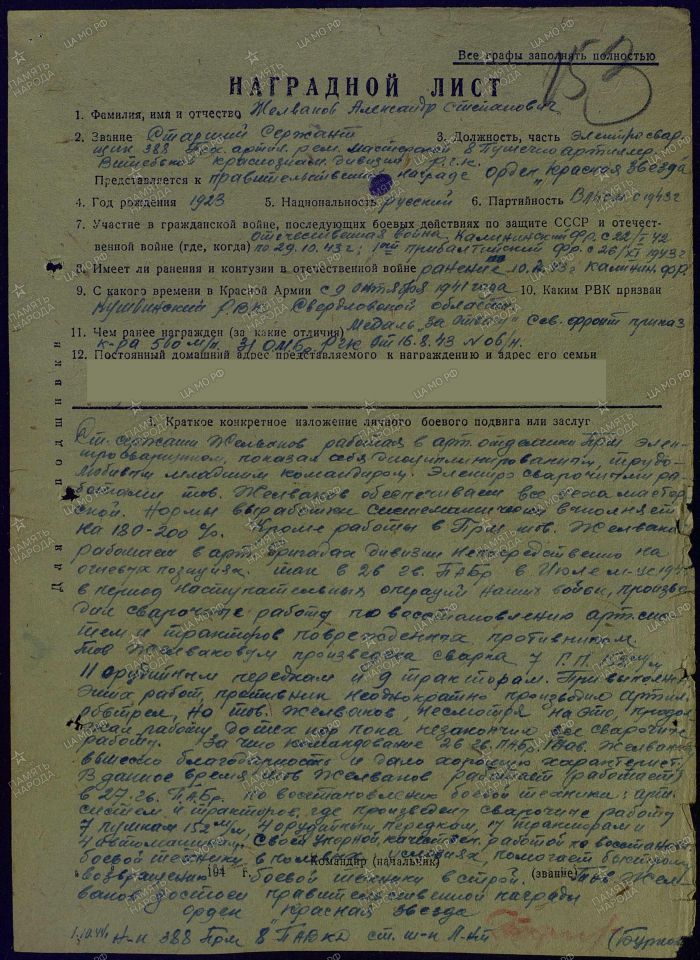 Все графы заполнять полностью
153
НАГРАДНОЙ ЛИСТ
1. Фамилия, имя и отчество Желванов Александр Степанович
2. Звание Старший Сержант 3. Должность, часть Электросвар
щик 388 артил. рем. мастерской 8 Пушечно артиллер.
Витебской краснознам. дивизии Р.Г.К.
Представляется к правительственной награде орден „Красная Звезда
4. Год рождения 1923 5. Национальность русский 6. Партийность с 1943 г
7. Участие в гражданской войне, последующих боевых действиях по защите СССР и отечест-
венной войне (где, когда) Отечественная война, Калининский Фр. с 22/I 42
по 29.10.43 г; прибалтийский Фр. с 26/XI 1943 г
8. Имеет ли ранения и контузии в отечественной войне ранение Калинин. фр.
9. С какого времени в Красной Армии с 9 октября 1941 года 10. Каким РВК призван
Кушвинский РВК Свердловской области
11. Чем ранее награжден (за какие отличия) Медаль „За Сев. фронт приказ
к-ра РГК от 16.8.43 № об/н.
12. Постоянный домашний адрес представляемого к награждению и адрес его семьи
Для подшивки
1. Краткое конкретное изложение личного боевого подвига или заслуг
Ст. сержант Желванов работая в арт. отделении Прм элек-
тросварщиком, показал себя дисциплинированным, трудо-
любивым младшим командиром. Электро сварочными ра-
ботами тов. Желванов обеспечивает все цеха мастер
ской. Нормы выработки систематически выполняет
на 180-200 %. Кроме работы в Прм тов. Желванов
работает в арт. бригадах дивизии непосредственно на
огневых позициях. так в 26 гв. ПАБр в Июле
в период наступательных операций наших войск, произво-
дил сварочные работы по восстановлению арт. сис-
тем и тракторов поврежденных противником.
Тов Желвановым произведена сварка 7 Г.П. 152 м/м
11 орудийным передкам и 9 тракторам. При выполнен.
этих работ, противник неоднократно производил артил.
обстрел, но тов. Желванов, несмотря на это, продол
жал работу до тех пор пока незакончил все сварочные
работы. За что командование 26 гв. ПАБр. Тов. Желванову
вынесло благодарность и дало хорошую характерист.
В данное время тов Желванов работает (работает)
в 27 гв. ПАБр. по восстановлению боевой техники: арт.
систем и тракторов, где произведены сварочные работы
7 пушкам 152 м/м, 4 орудийным передкам, тракторам и
4 автомашинам. Своей упорной, качествен. работой по восстанов.
боевой техники в помогает быстрому
Командир (начальник)
возвращению боевой техники в строй. Тов. Жел-
194 г. (звание)
ванов достоен правительственной награды
орден „Красная звезда
1.10.44 Н-к 388 Прм 8 ПАВКД ст. т-к л-нт (Бурков
ПАМЯТЬ НАРОДА
ЦА МО РФ